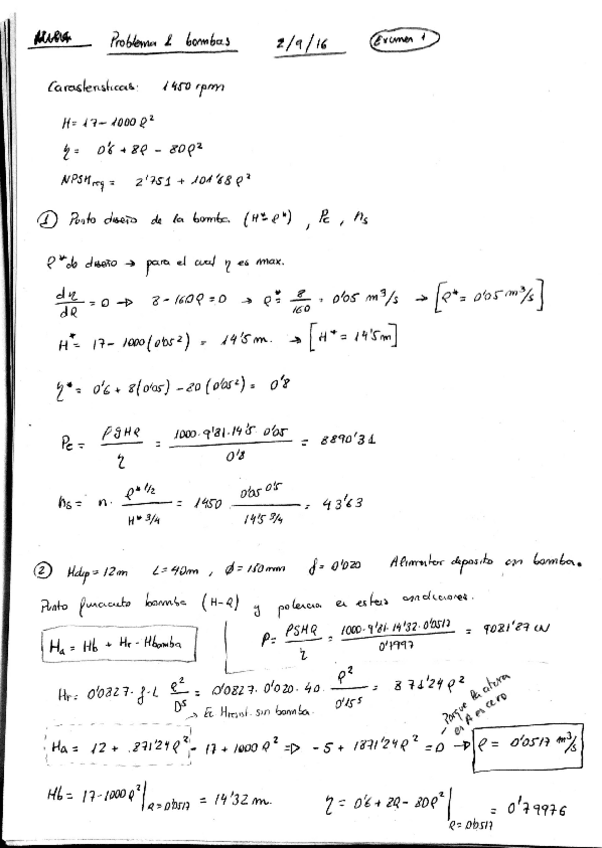 Problema 2 bombas 2/9/16 Examen 1
Características: 1450 rpm
H = 17 - 1000 Q²
η = 0'6 + 8Q - 80Q²
NPSHreq = 2'751 + 101'68 Q²
① Punto diseño de la bomba (H* Q*), Pe, ns
Q* do diseño → para el cual η es max.
dη/dQ = 0 → 8 - 160Q = 0 → Q* = 8/160 = 0'05 m³/s → [Q* = 0'05 m³/s]
H* = 17 - 1000 (0'05²) = 14'5 m. → [H* = 14'5 m]
η* = 0'6 + 8(0'05) - 80 (0'05²) = 0'8
Pe = ρgHQ/η = 1000·9'81·14'5·0'05/0'8 = 8890'31
ns = n · Q*^1/2 / H*^3/4 = 1450 0'05^0'5 / 14'5^3/4 = 43'63
② Hdep = 12m L = 40m, ϕ = 150mm f = 0'020 Alimentar deposito con bomba.
Punto funcionto bomba (H-Q) y potencia en estas condiciones.
Ha = Hb + Hr - Hbomba
P = ρgHQ/η = 1000·9'81·14'32·0'0517/0'7997 = 9081'87 W
Hr = 0'0827·f·L Q²/D⁵ = 0'0827·0'020·40· Q²/0'15⁵ = 871'24 Q²
→ Ec Hresist. sin bomba.
Porque la altura en A es cero
Ha = 12 + 871'24 Q² - 17 + 1000 Q² => -5 + 1871'24 Q² = 0 → Q = 0'0517 m³/s
Hb = 17 - 1000 Q² | Q = 0'0517 = 14'32 m.
η = 0'6 + 8Q - 80Q² | Q = 0'0517 = 0'79976